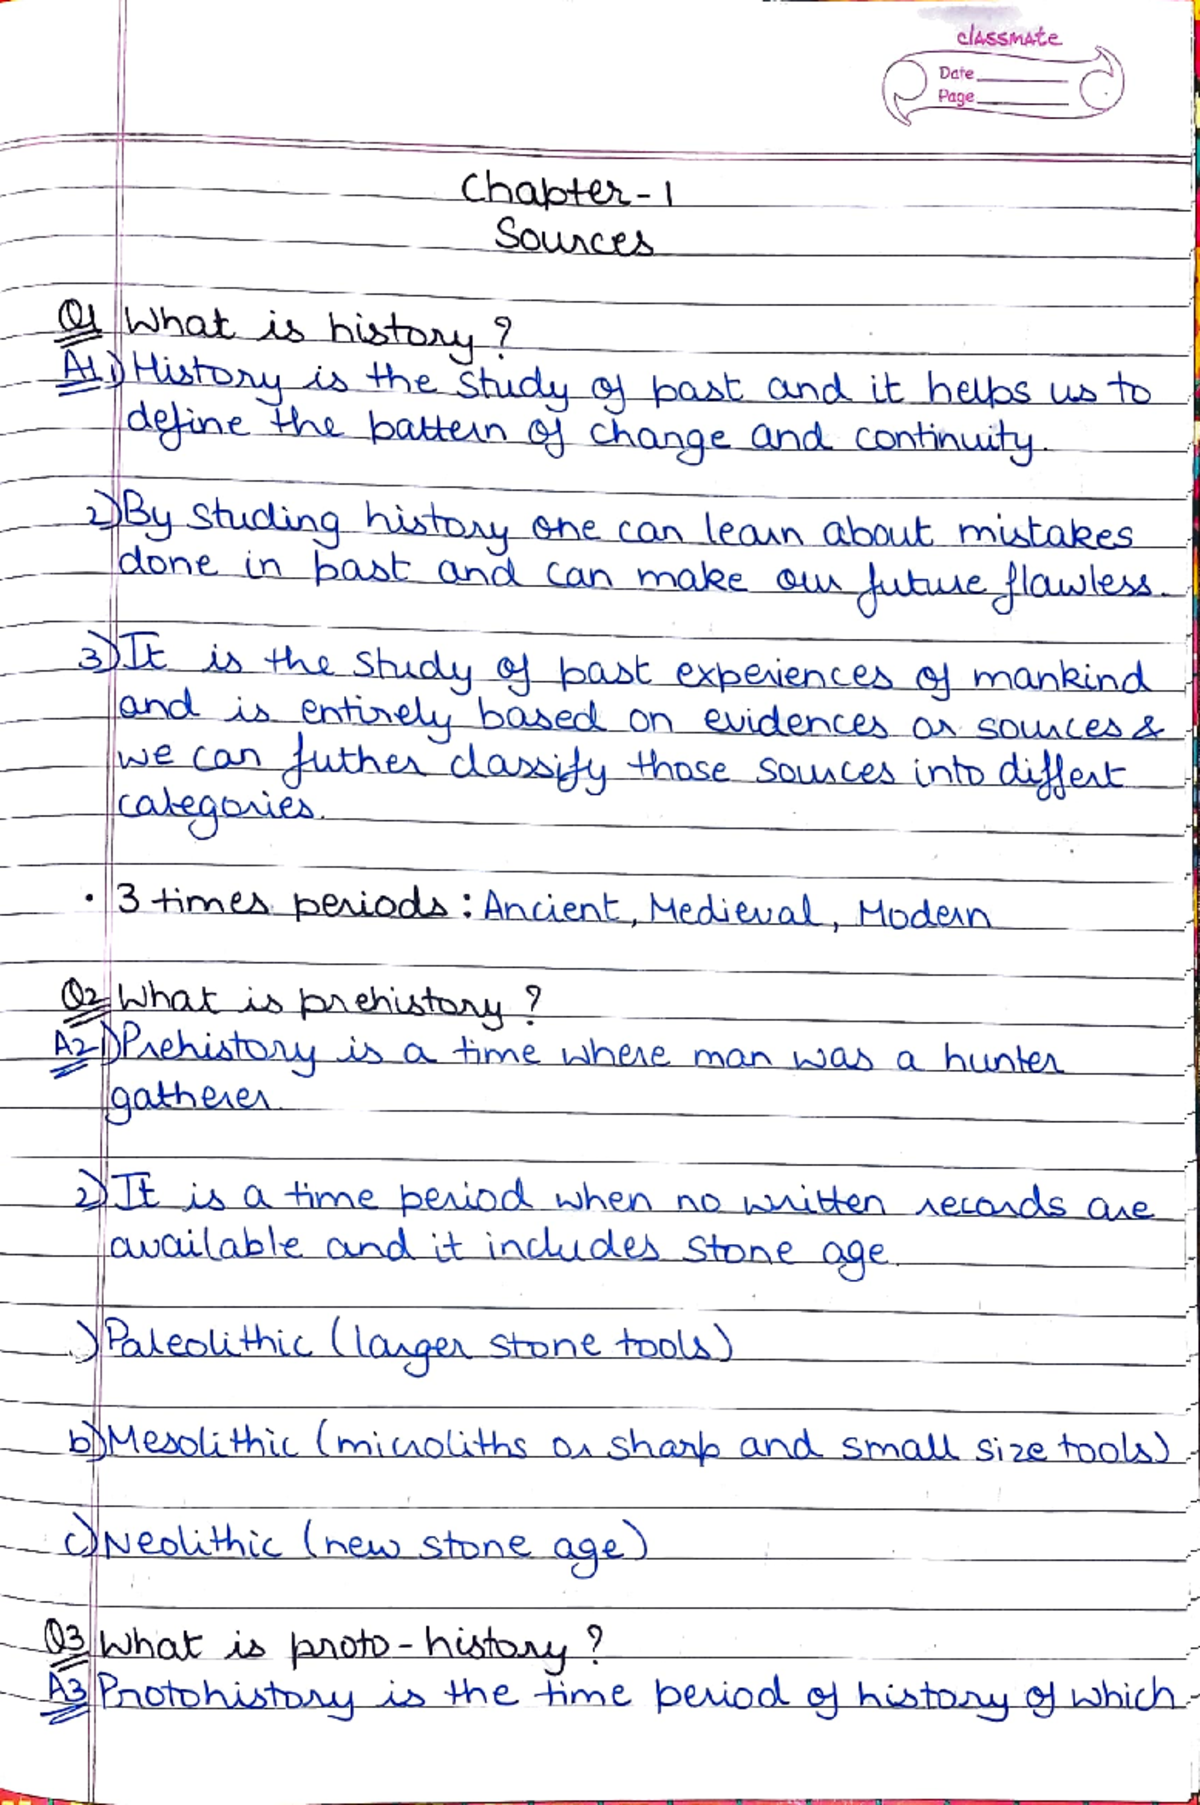 classmate
Date
Page
Chapter-1
Sources
Q1 What is history?
A1 1) History is the study of past and it helps us to
define the pattern of change and continuity.
2) By studing history one can learn about mistakes
done in past and can make our future flawless.
3) It is the study of past experiences of mankind
and is entirely based on evidences or sources &
we can futher classify those sources into differt
categories.
• 3 times periods: Ancient, Medieval, Modern
Q2 What is prehistory?
A2 1) Prehistory is a time where man was a hunter
gatherer.
2) It is a time period when no written records are
available and it includes stone age.
) Paleolithic (larger stone tools)
b) Mesolithic (microliths or sharp and small size tools)
c) Neolithic (new stone age)
Q3 What is proto-history?
A3 Protohistory is the time period of history of which